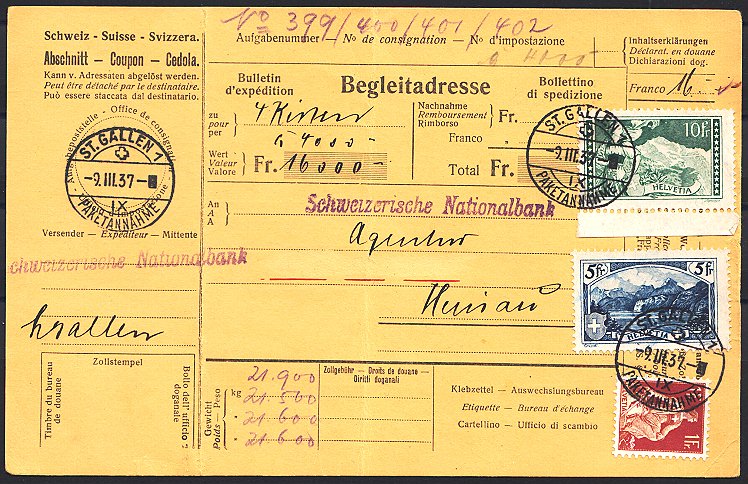 No 399/400/401/402
Schweiz - Suisse - Svizzera.
Abschnitt — Coupon — Cedola.
Kann v. Adressaten abgelöst werden.
Peut être détaché par le destinataire.
Può essere staccata dal destinatario.
Aufgabenummer — No de consignation — No d'impostazione
à 4000
Inhaltserklärungen
Déclarat. en douane
Dichiarazioni dog.
Franco 16.-
Aufgabepoststelle - Office de consignation
ST. GALLEN 1
-9.III.37-
IX
PAKETANNAHME
Bulletin
d'expédition
Begleitadresse
Bollettino
di spedizione
zu
pour
per
4 Kisten
à 4000.-
Nachnahme
Remboursement
Rimborso
Fr.
Franco
Wert
Valeur
Valore
Fr. 16000.-
Total Fr.
ST. GALLEN 1
-9.III.37-
IX
PAKETANNAHME
10Fr.
HELVETIA
Versender — Expéditeur — Mittente
chweizerische Nationalbank
An
A
A
Schweizerische Nationalbank
Agentur
5Fr. 5Fr.
HELVETIA
Zollstempel
Timbre du bureau
de douane
Bollo dell'ufficio
doganale
Gewicht
Poids — Peso
kg
21.900
21.500
21.600
21.600
Zollgebühr — Droits de douane —
Diritti doganali
Klebzettel — Auswechslungsbureau
Etiquette — Bureau d'échange
Cartellino — Ufficio di scambio
ST. GALLEN 1
-9.III.37-
IX
PAKETANNAHME
HELVETIA
1Fr.